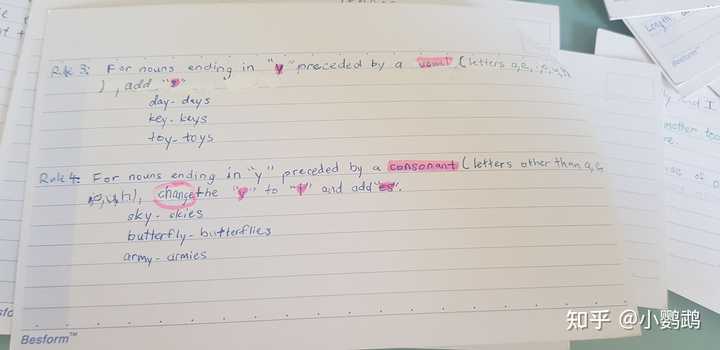 Rule 3: For nouns ending in "y" preceded by a vowel (letters a,e,i,o,u,h
), add "s"
day - days
key - keys
toy - toys
Rule 4: For nouns ending in "y" preceded by a consonant (letters other than a, e,
o,u,h), change the "y" to "i" and add "es".
sky - skies
butterfly - butterflies
army - armies
Besform™
知乎 @小鹦鹉
Length
Besform
y and I
another